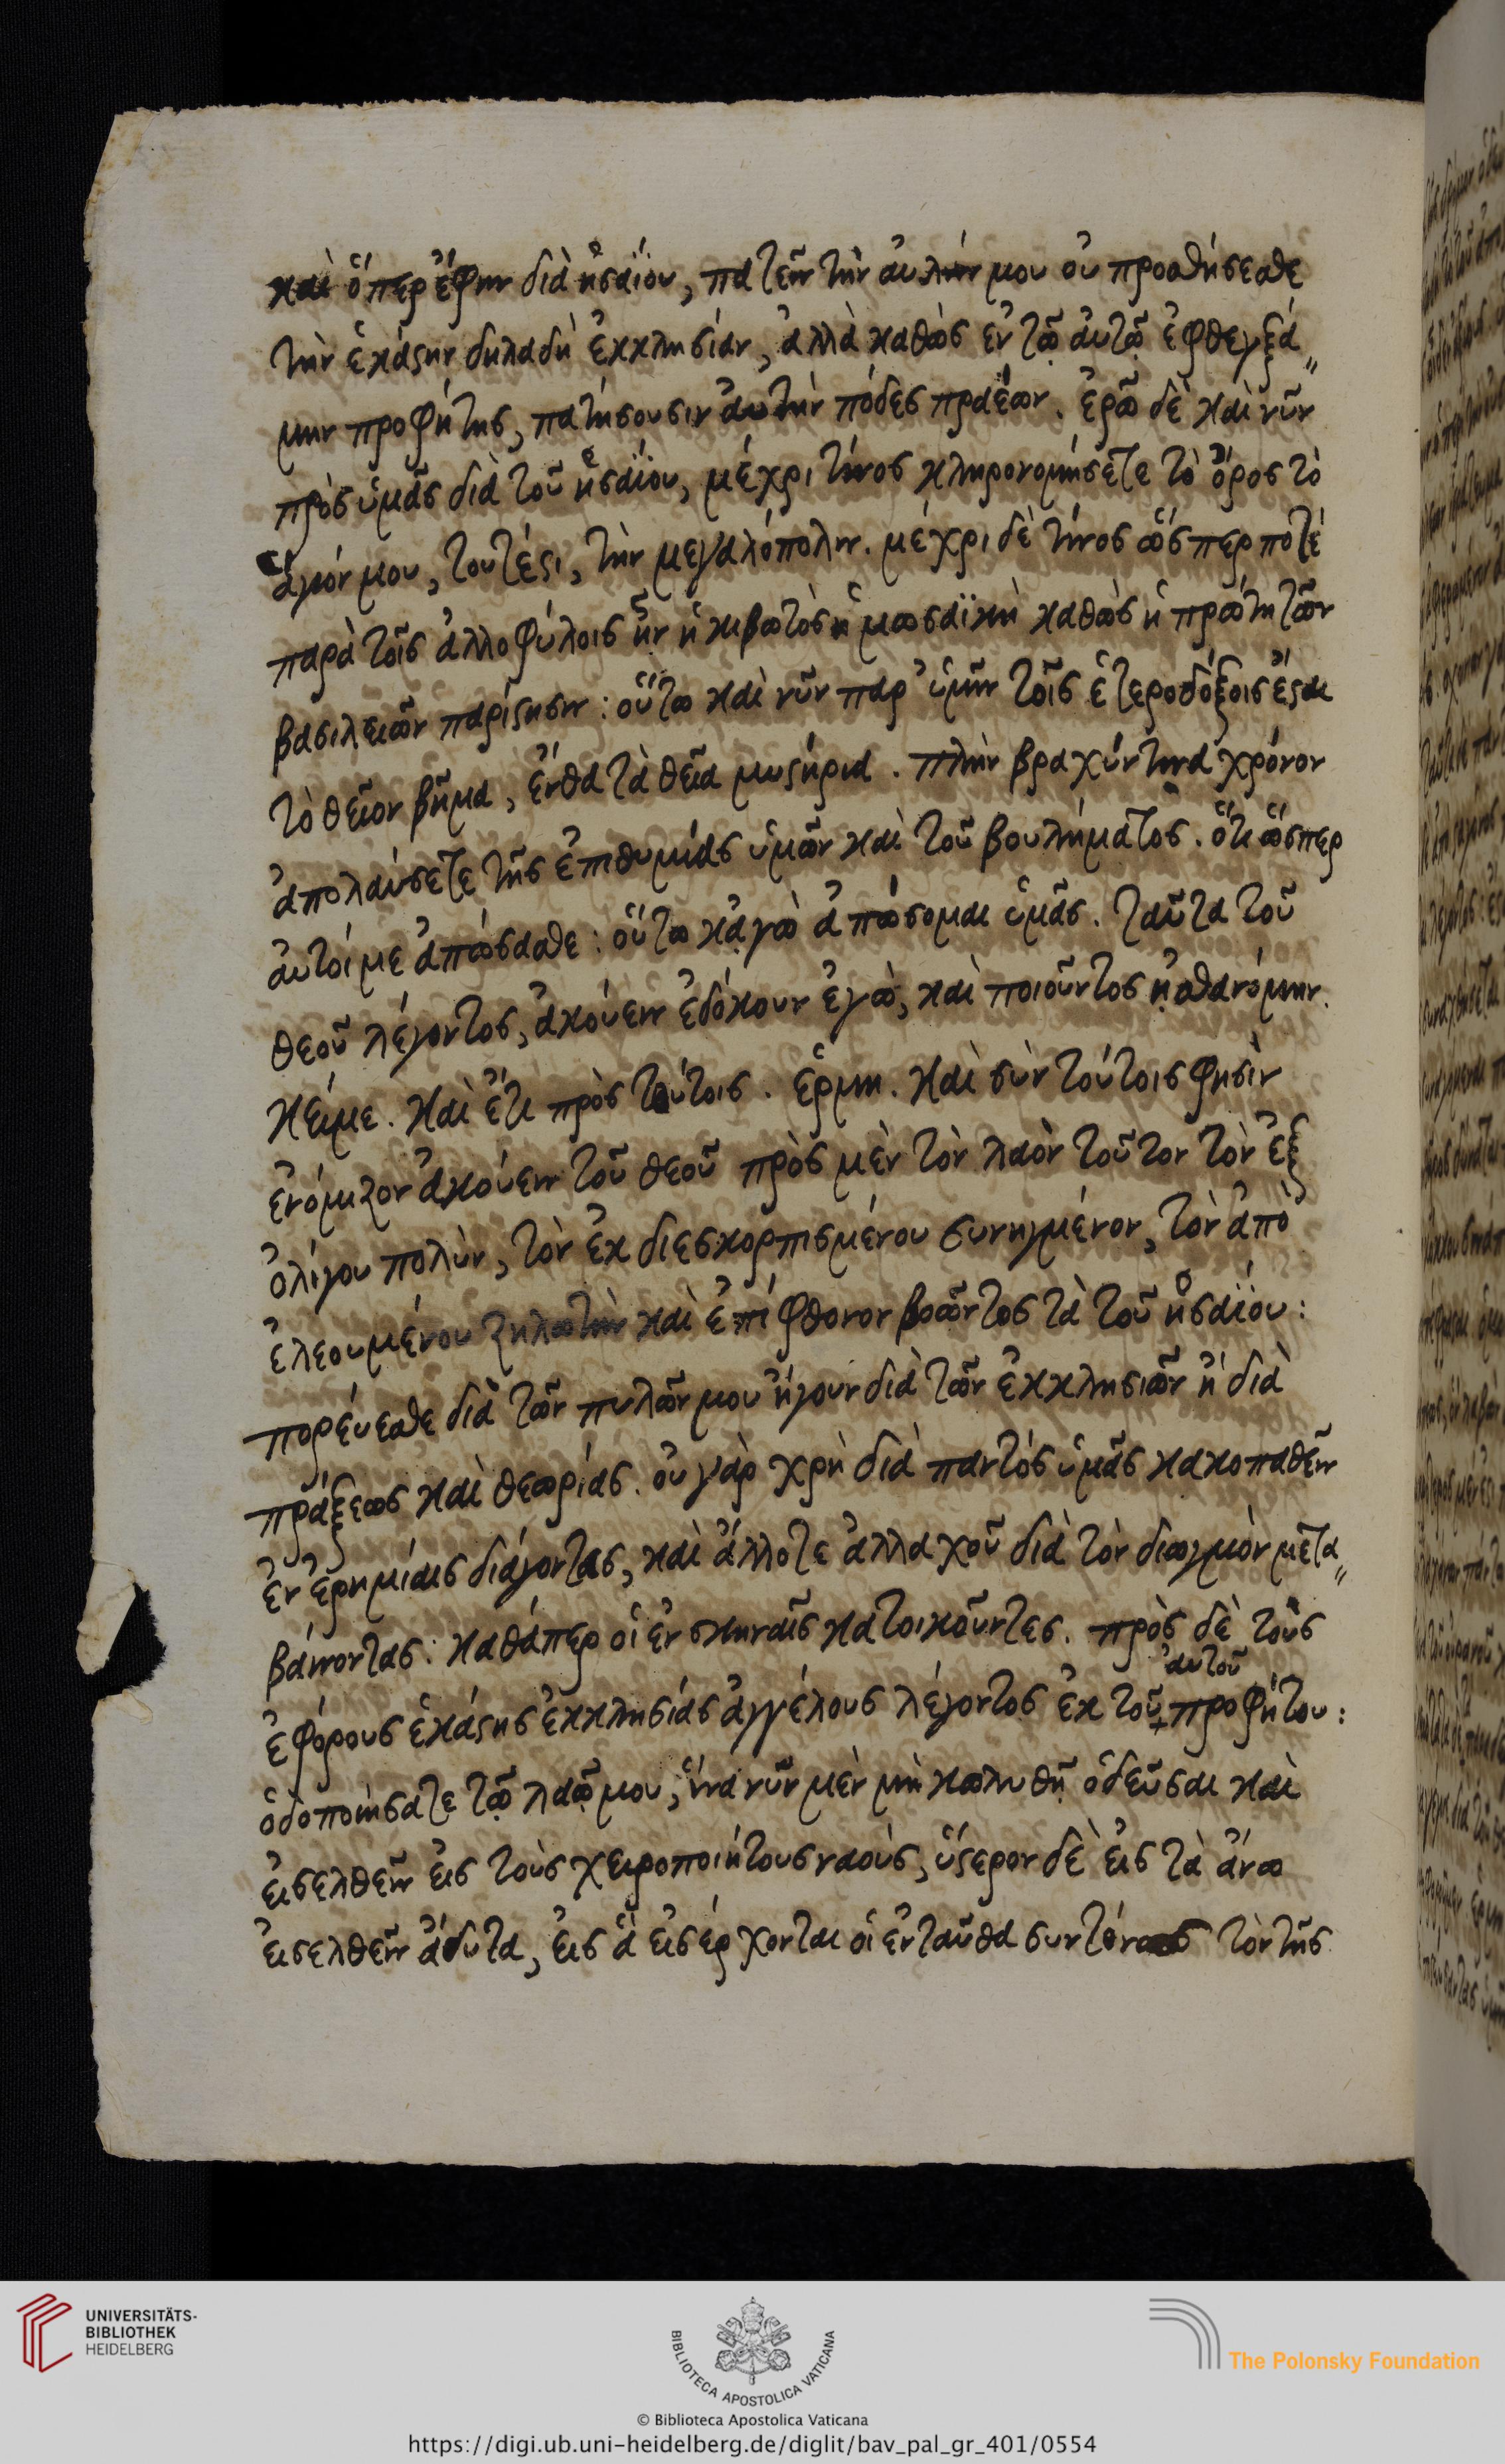 καὶ ὅπερ ἔφην διὰ ἡσαΐου, πατεῖν τὴν αὐλήν μου οὐ προσθήσεσθε
τὴν ἑκάστην δηλαδὴ ἐκκλησίαν, ἀλλὰ καθὼς ἐν τῷ αὐτῷ ἐφθεγξά„
μην προφήτης, πατήσουσιν αὐτὴν πόδες πραέων. ἐρῶ δὲ καὶ νῦν
πρὸς ὑμᾶς διὰ τοῦ ἡσαΐου, μέχρι τίνος κληρονομήσετε τὸ ὄρος τὸ
ἅγιόν μου, τουτέστι, τὴν μεγαλόπολιν. μέχρι δὲ τίνος ὥσπερ ποτὲ
παρὰ τοῖς ἀλλοφύλοις ἦν ἡ κιβωτὸς ἡ μωσαϊκὴ καθὼς ἡ πρώτη τῶν
βασιλειῶν παρίστησιν: οὕτω καὶ νῦν παρ' ὑμῖν τοῖς ἑτεροδόξοις ἔσται
τὸ θεῖον βῆμα, ἔνθα τὰ θεῖα μυστήρια. πλὴν βραχύν τινα χρόνον
ἀπολαύσετε τῆς ἐπιθυμίας ὑμῶν καὶ τοῦ βουλήματος. ὅτι ὥσπερ
αὐτοί με ἀπώσασθε: οὕτω κἀγὼ ἀπώσομαι ὑμᾶς. ταῦτα τοῦ
θεοῦ λέγοντος, ἀκούειν ἐδόκουν ἐγώ, καὶ ποιοῦντος ᾐσθανόμην.
Κείμε. Καὶ ἔτι πρὸς τούτοις. ἑρμη. Καὶ σὺν τούτοις φησὶν
ἐνόμιζον ἀκούειν τοῦ θεοῦ πρὸς μὲν τὸν λαὸν τοῦτον τὸν ἐξ
ὀλίγου πολὺν, τὸν ἐκ διεσκορπισμένου συνηγμένον, τὸν ἀπὸ
ἐλεουμένου ζηλωτὴν καὶ ἐπίφθονον βοῶντος τὰ τοῦ ἡσαΐου:
πορεύεσθε διὰ τῶν πυλῶν μου ἤγουν διὰ τῶν ἐκκλησιῶν ἢ διὰ
πράξεως καὶ θεωρίας. οὐ γὰρ χρὴ διὰ παντὸς ὑμᾶς κακοπαθεῖν
ἐν ἐρημίαις διάγοντας, καὶ ἄλλοτε ἀλλαχοῦ διὰ τὸν διωγμὸν μετα„
βαίνοντας: καθάπερ οἱ ἐν σκηναῖς κατοικοῦντες. πρὸς δὲ τοὺς
αὐτοῦ
ἐφόρους ἑκάστης ἐκκλησίας ἀγγέλους λέγοντος ἐκ τοῦ+ προφήτου:
ὁδοποιήσατε τῷ λαῷ μου, ἵνα νῦν μὲν μὴ κωλυθῇ ὁδεῦσαι καὶ
εἰσελθεῖν εἰς τοὺς χειροποιήτους ναοὺς, ὕστερον δὲ εἰς τὰ ἄνω
εἰσελθεῖν ἄδυτα, εἰς ἃ εἰσέρχονται οἱ ἐνταῦθα συντόνως τὸν τῆς
UNIVERSITÄTS-
BIBLIOTHEK
HEIDELBERG
BIBLIOTECA APOSTOLICA VATICANA
The Polonsky Foundation
© Biblioteca Apostolica Vaticana
https://digi.ub.uni-heidelberg.de/diglit/bav_pal_gr_401/0554